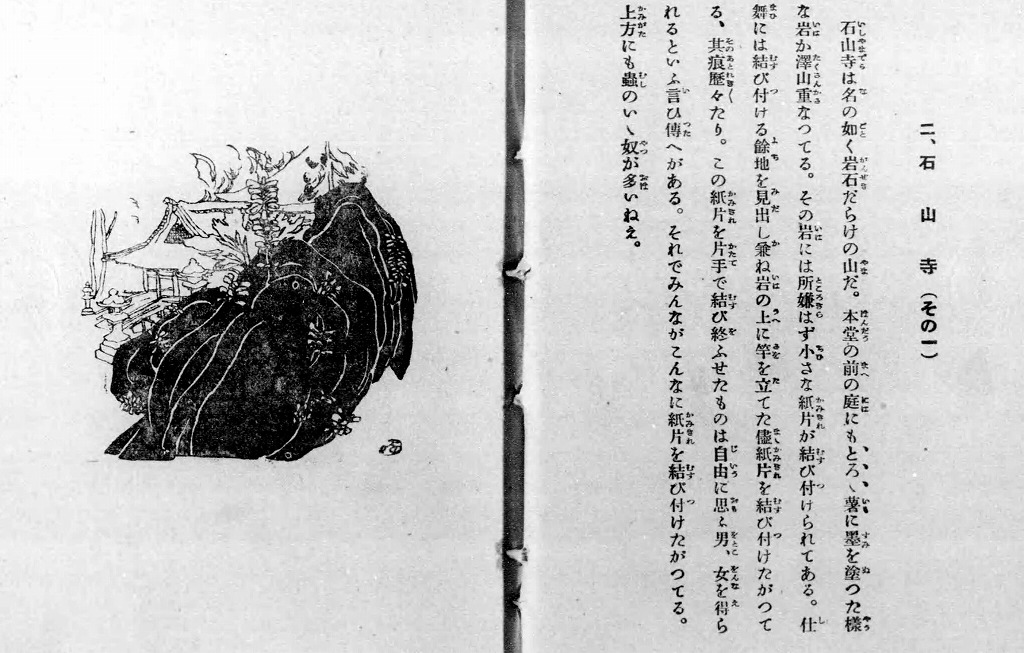 二、石山寺(その一)
石山寺は名の如く岩石だらけの山だ。本堂の前の庭にもとろゝ薯に墨を塗つた樣
な岩か澤山重なつてる。その岩には所嫌はず小さな紙片が結び付けられてある。仕
舞には結び付ける餘地を見出し兼ね岩の上に竿を立てた儘紙片を結び付けたがつて
る、其痕歴々たり。この紙片を片手で結び終ふせたものは自由に思ふ男、女を得ら
れるといふ言ひ傳へがある。それでみんながこんなに紙片を結び付けたがつてる。
上方にも蟲のいゝ奴が多いねえ。